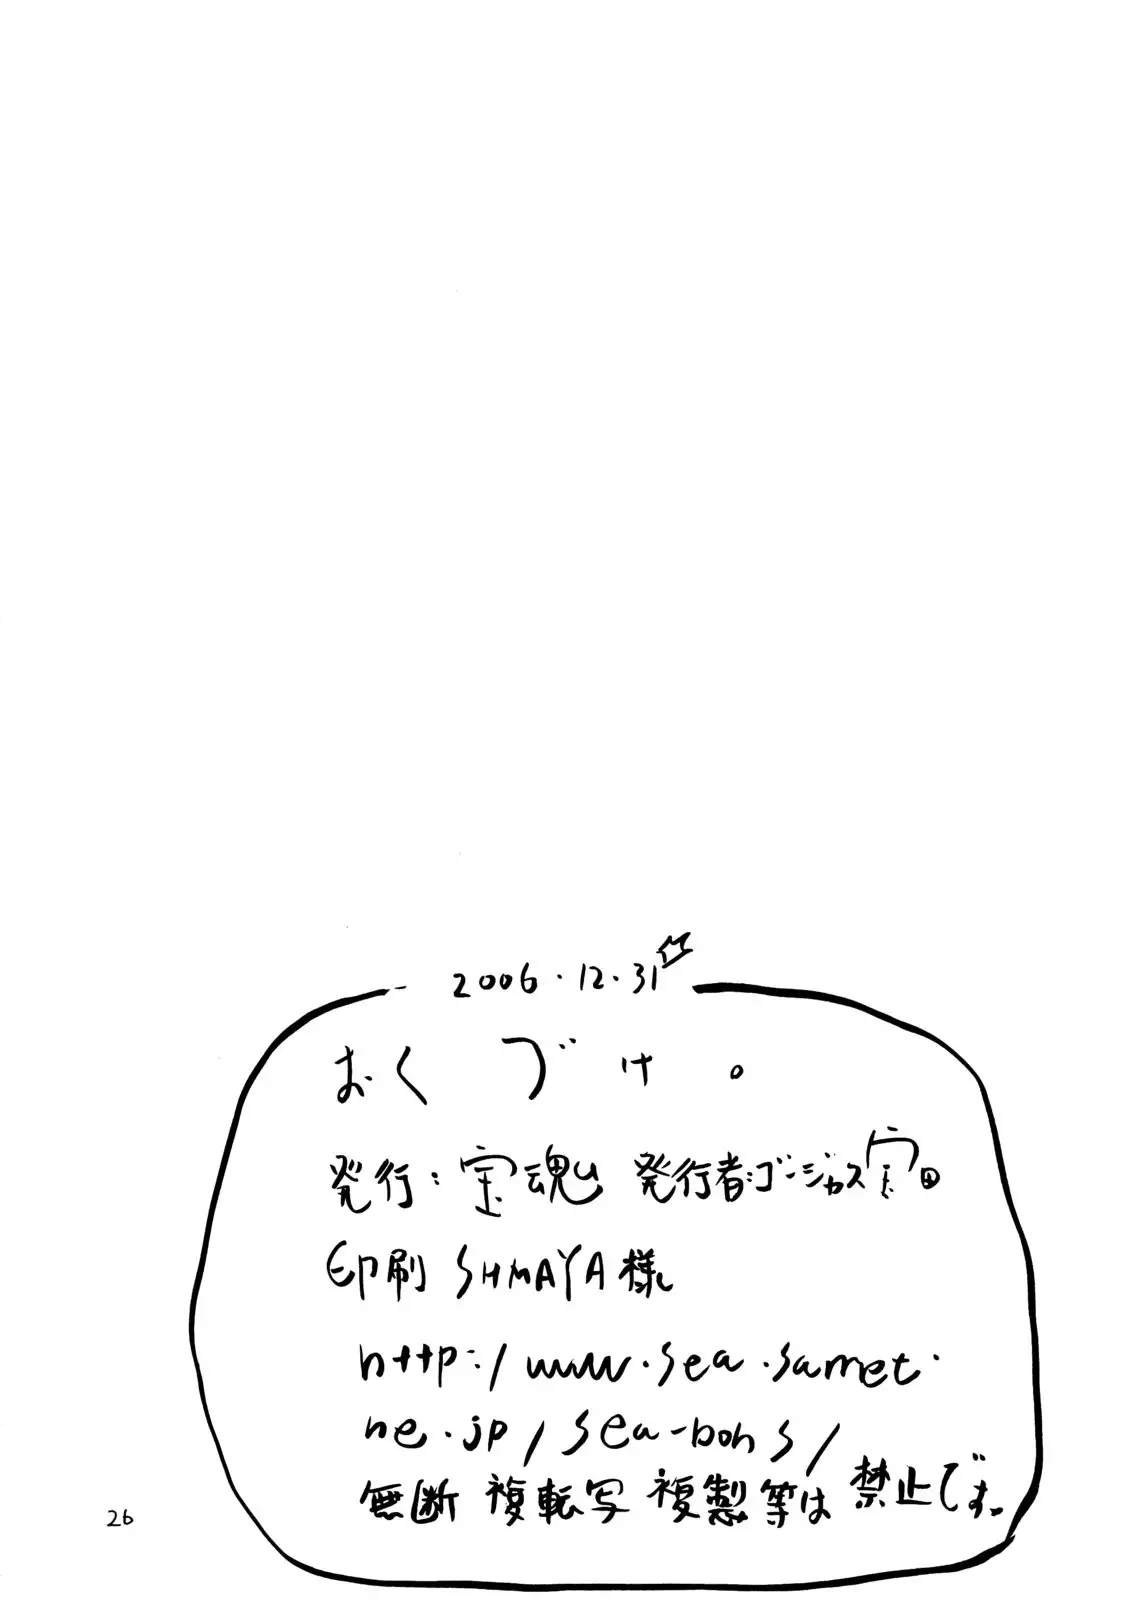 2006.12.31
おくづけ。
発行:宝魂 発行者:ゴージャス宝田
印刷 SHMAYA様
http:/www.sea.sannet.
ne.jp/sea-bons/
無断 複転写 複製等は 禁止です。
26